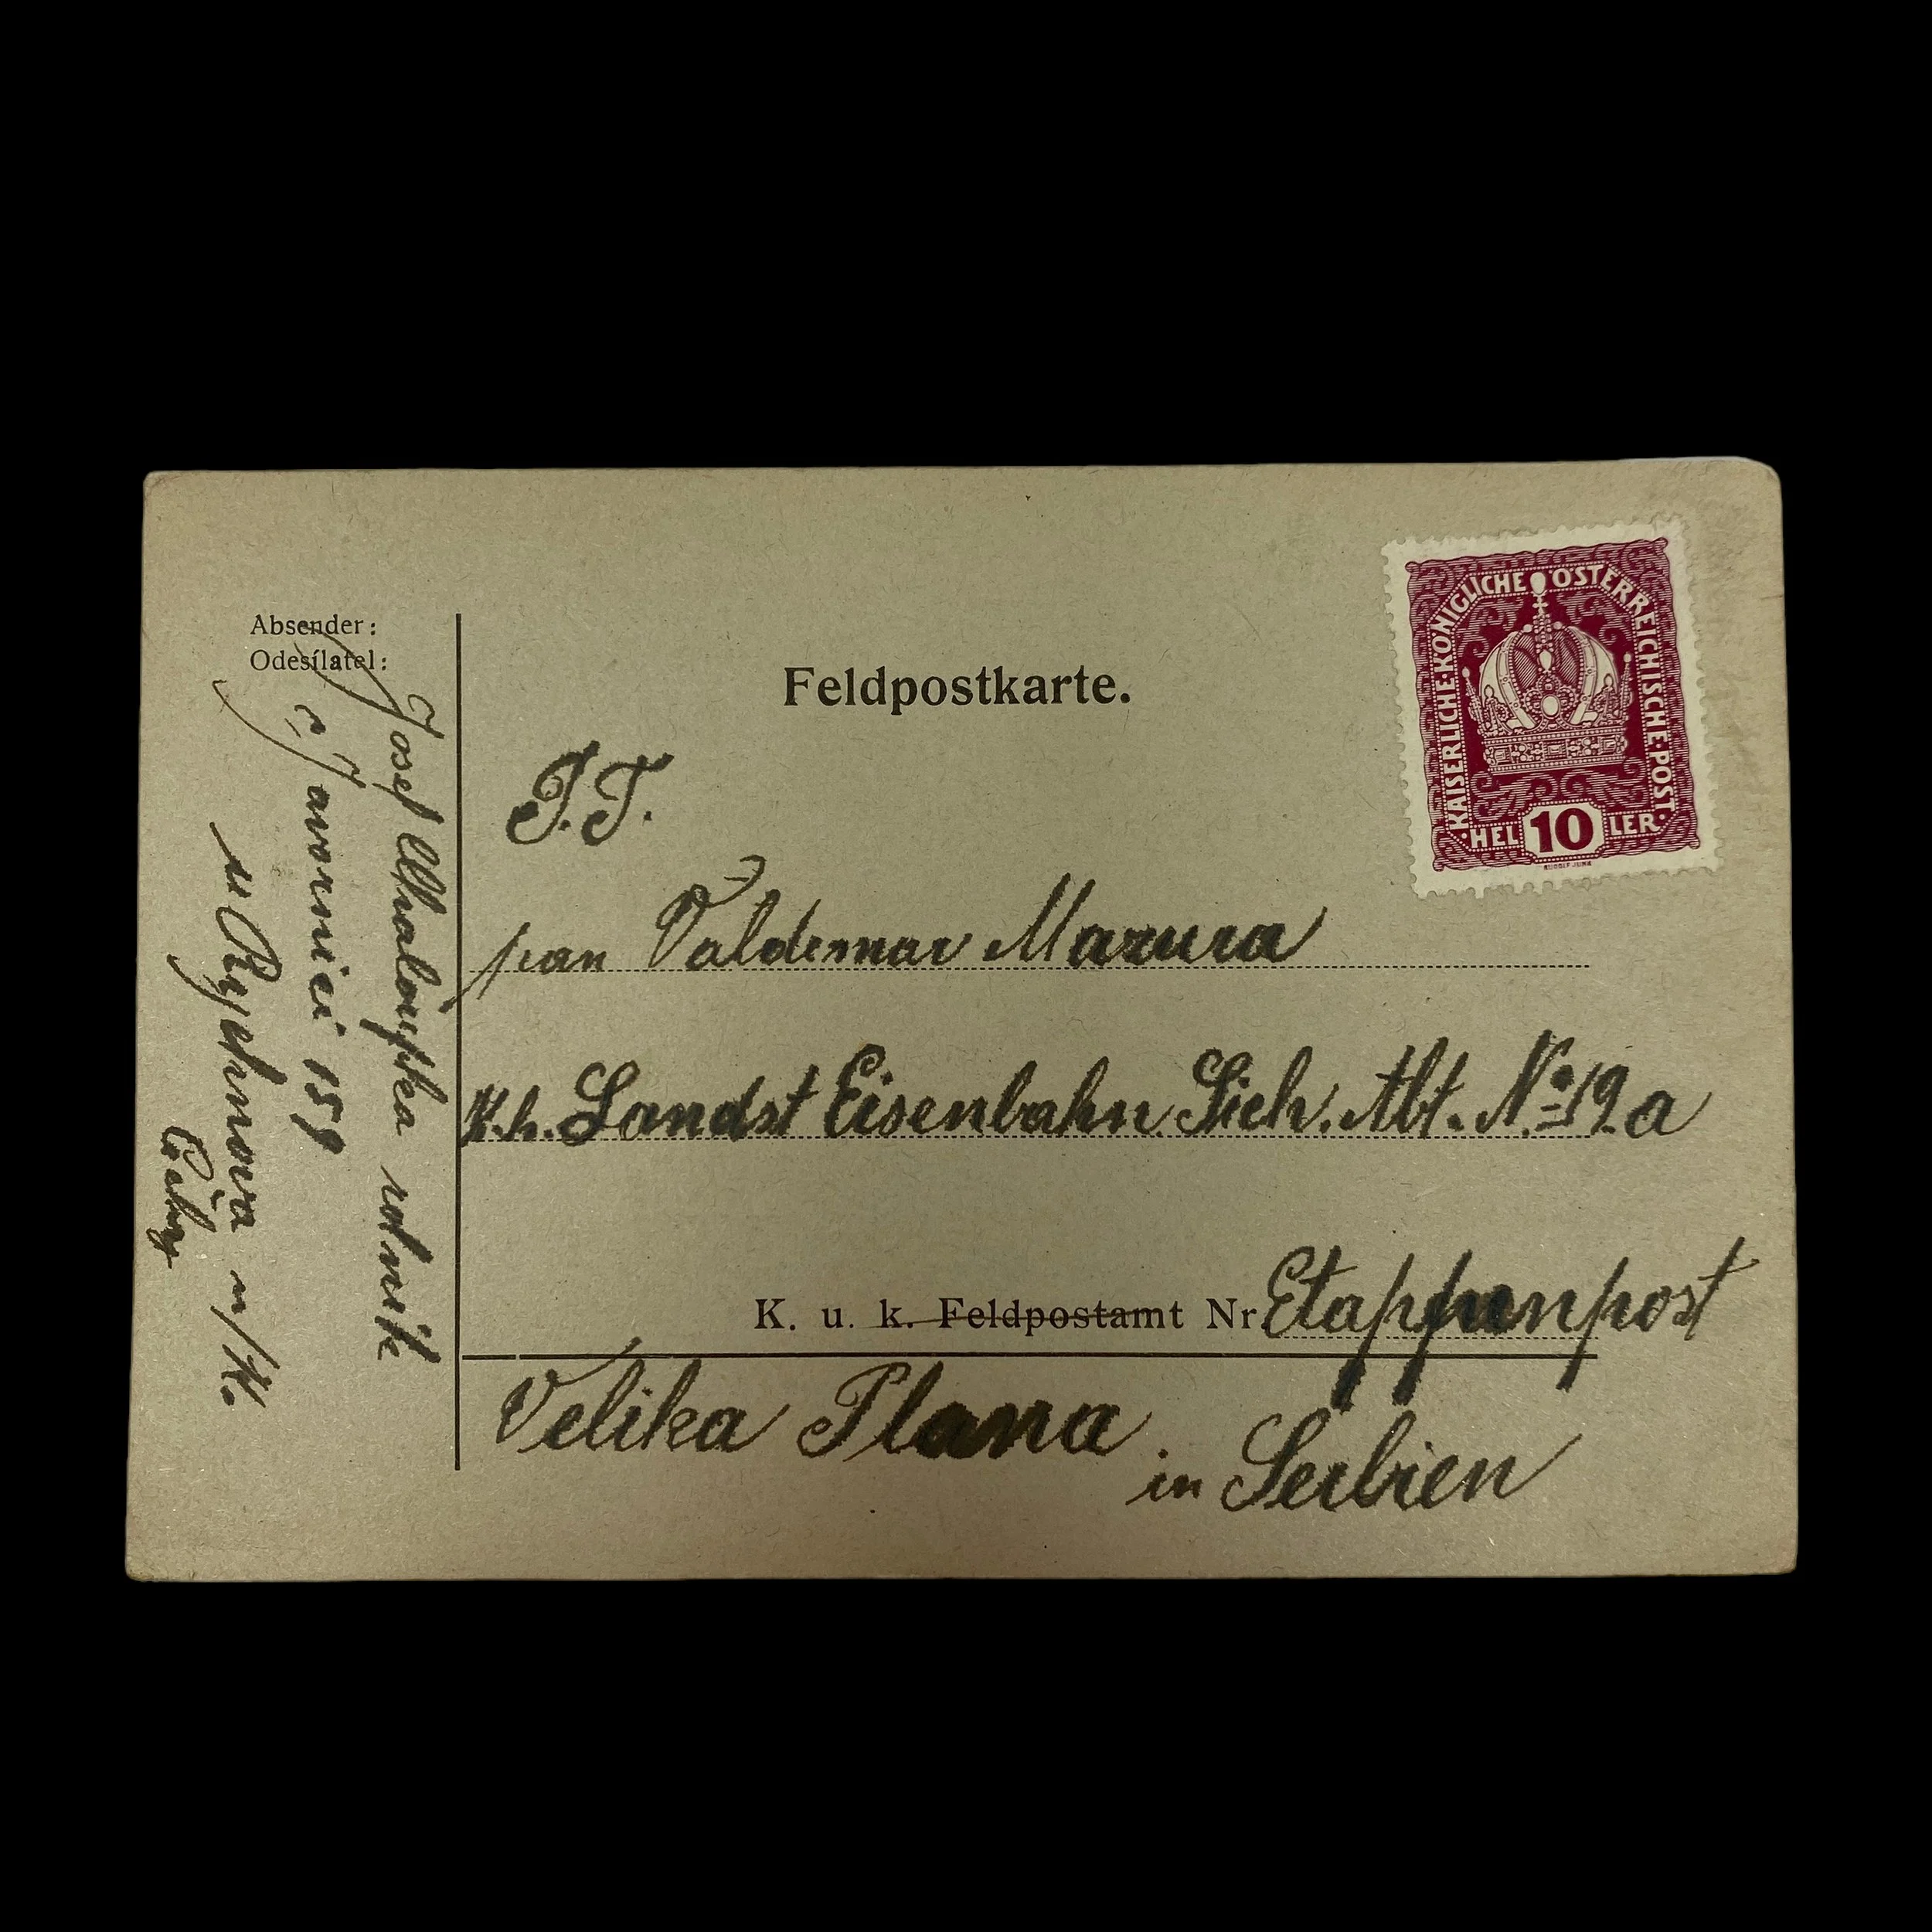 Absender:
Odesílatel:
Josef Chaloupka rolník
v Javornici 159
u Rychnova n/K.
Čechy
Feldpostkarte.
KAISERLICHE·KÖNIGLICHE ÖSTERREICHISCHE·POST·
·HEL 10 LER·
RUDOLF JUNK
P.T.
pan Valdemar Mazura
K.k. Landst Eisenbahn. Sich. Abt. No 19 a
K. u. k. Feldpostamt Nr. Etappenpost
Velika Plana.
in Serbien